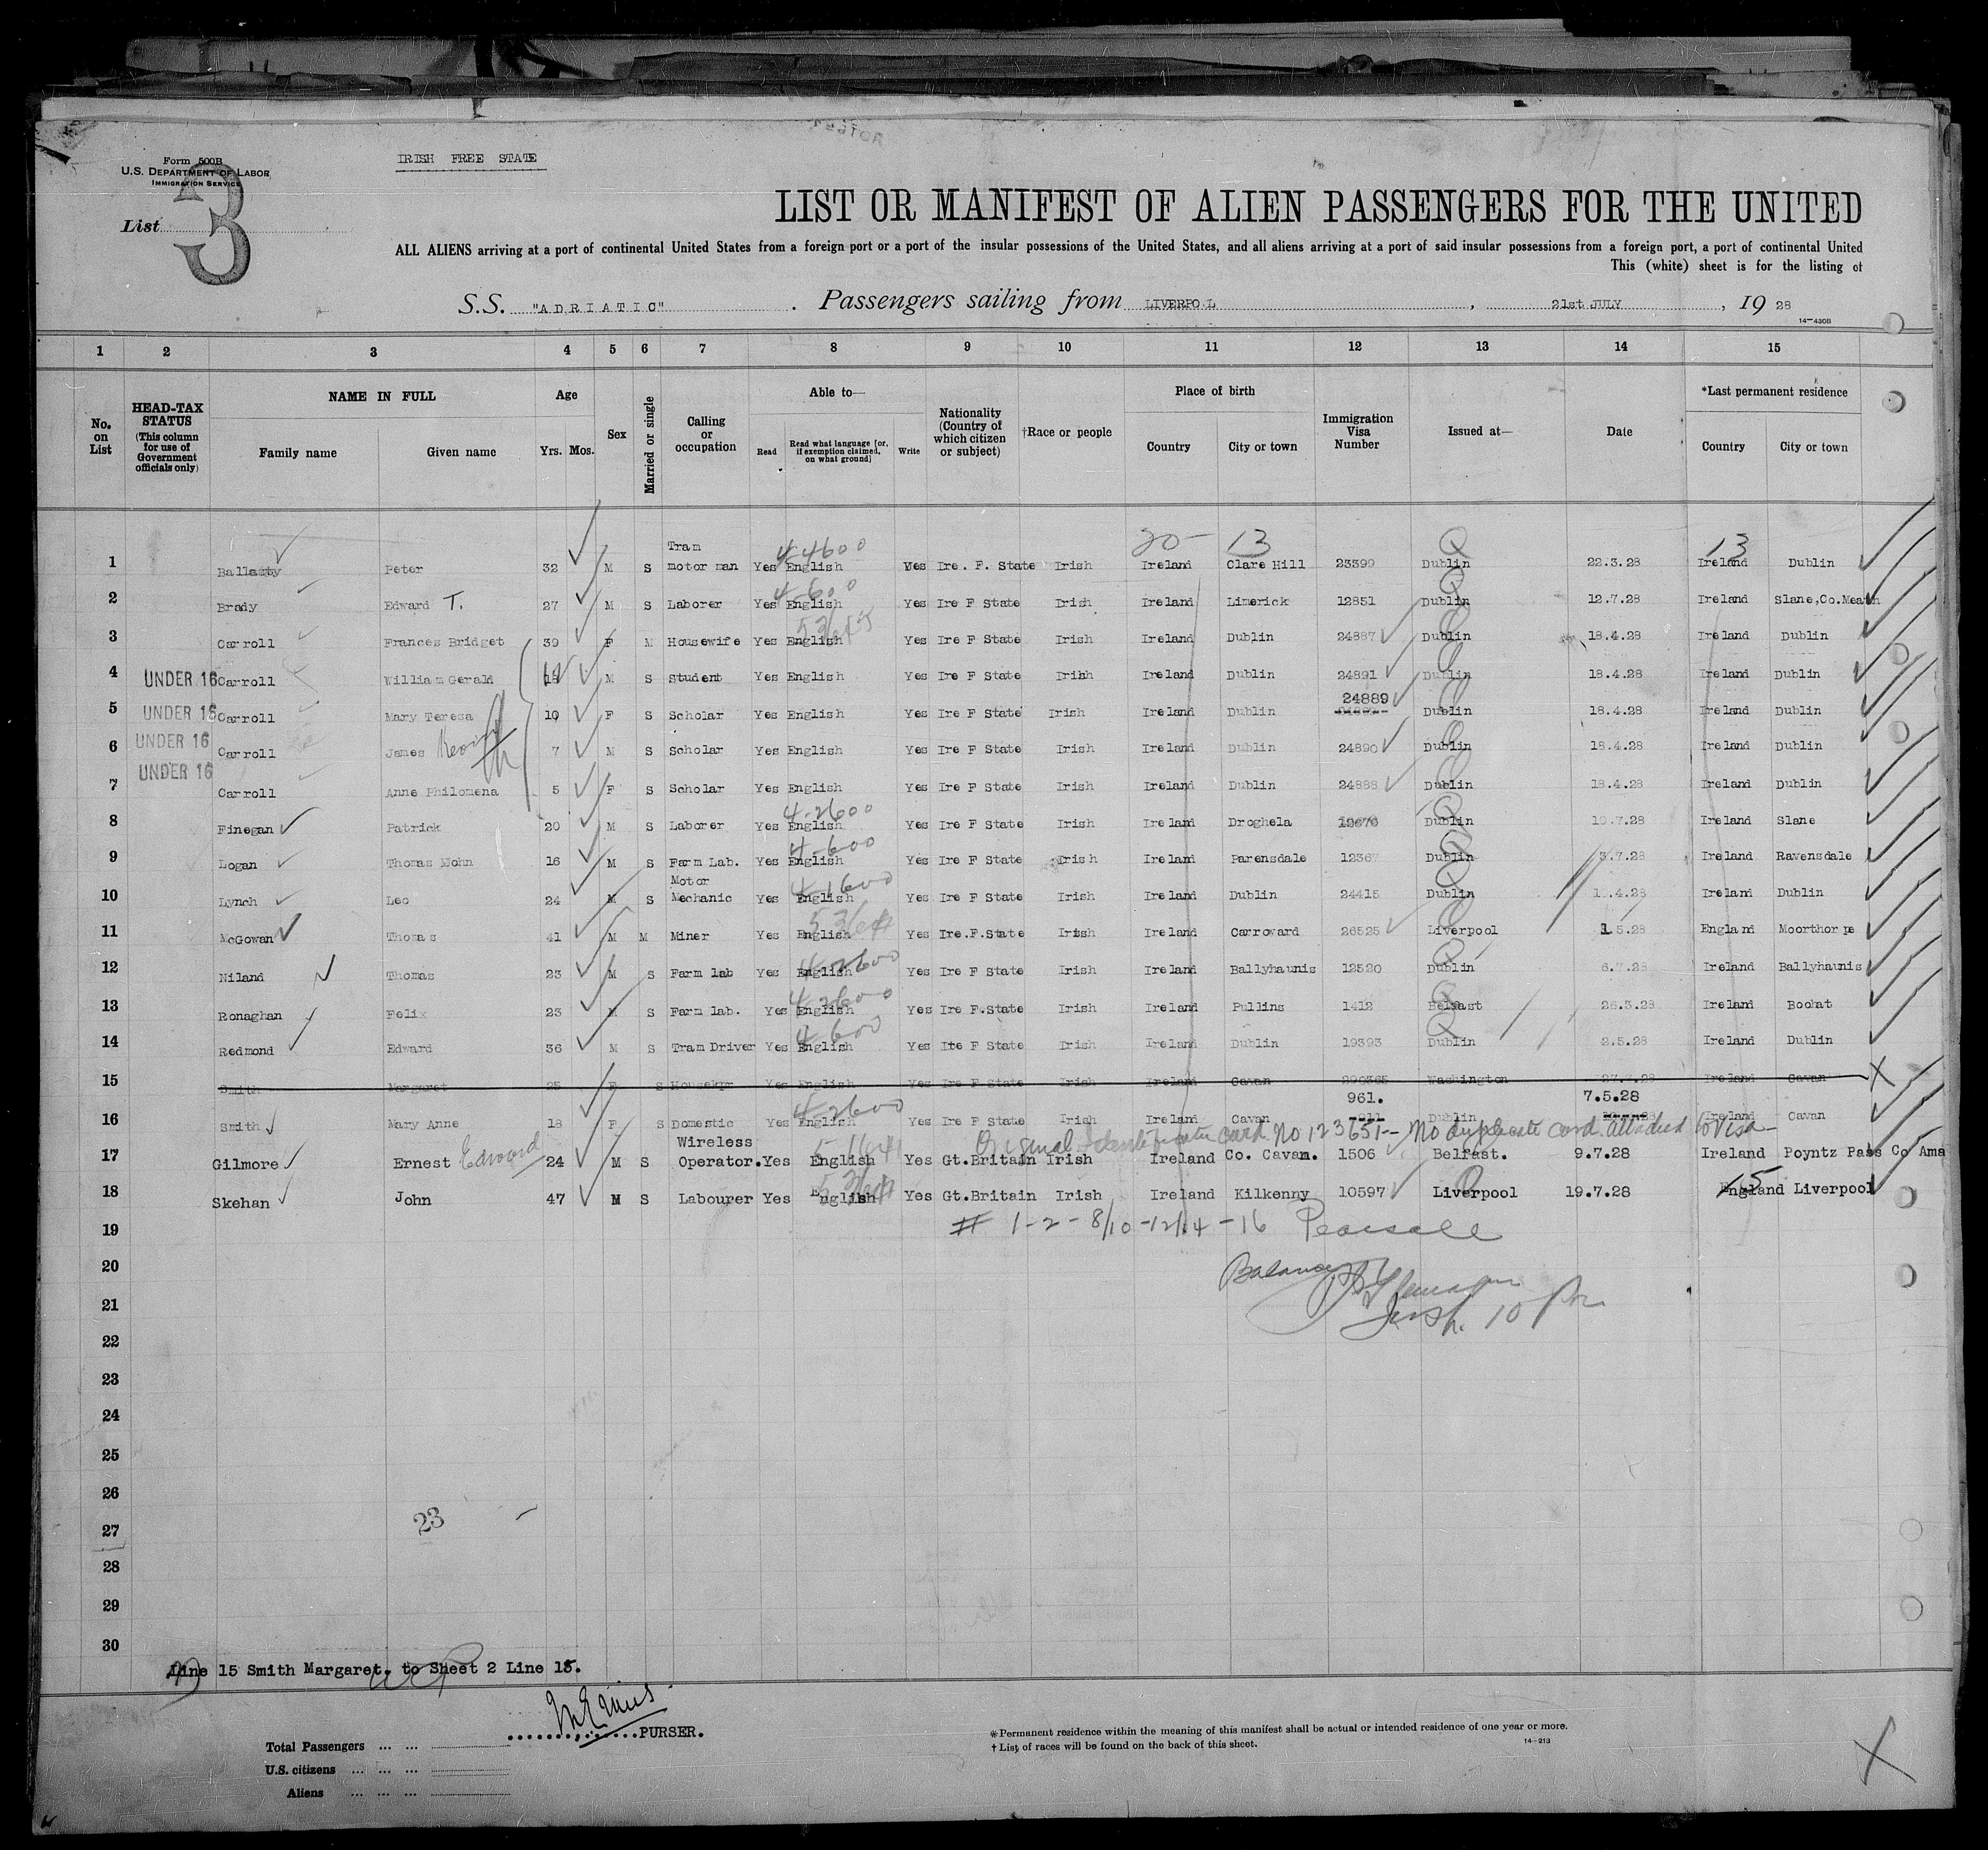 Form 500B
U.S. DEPARTMENT OF LABOR
IMMIGRATION SERVICE
IRISH FREE STATE
List 3
LIST OR MANIFEST OF ALIEN PASSENGERS FOR THE UNITED
ALL ALIENS arriving at a port of continental United States from a foreign port or a port of the insular possessions of the United States, and all aliens arriving at a port of said insular possessions from a foreign port, a port of continental United
This (white) sheet is for the listing of
S.S. "ADRIATIC" . Passengers sailing from LIVERPOOL , 21st JULY , 19 28
14-430B
1 2 3 4 5 6 7 8 9 10 11 12 13 14 15
No. on List
HEAD-TAX STATUS (This column for use of Government officials only)
NAME IN FULL Family name Given name
Age Yrs. Mos.
Sex
Married or single
Calling or occupation
Able to— Read Read what language [or, if exemption claimed, on what ground] Write
Nationality (Country of which citizen or subject)
†Race or people
Place of birth Country City or town
Immigration Visa Number
Issued at—
Date
*Last permanent residence Country City or town
20- 13 13
1 Peter 32 M S Tram motor man Yes English 4-4600 Yes Ire. F. State Irish Ireland Clare Hill 23399 Dublin 22.3.28 Ireland Dublin
2 Brady Edward T. 27 M S Laborer Yes English 4-600 Yes Ire F State Irish Ireland Limerick 12851 Dublin 12.7.28 Ireland Slane,Co.Meath
3 Carroll Frances Bridget 39 F M Housewife Yes English Yes Ire F State Irish Ireland Dublin 24887 Dublin 18.4.28 Ireland Dublin
4 UNDER 16 Carroll William Gerald M S Student Yes English Yes Ire F State Irish Ireland Dublin 24891 Dublin 18.4.28 Ireland Dublin
5 UNDER 16 Carroll Mary Teresa 10 F S Scholar Yes English Yes Ire F State Irish Ireland Dublin 24889 Dublin 18.4.28 Ireland Dublin
6 UNDER 16 Carroll James Kevin 7 M S Scholar Yes English Yes Ire F State Irish Ireland Dublin 24890 Dublin 18.4.28 Ireland Dublin
7 UNDER 16 Carroll Anne Philomena 5 F S Scholar Yes English Yes Ire F State Irish Ireland Dublin 24888 Dublin 18.4.28 Ireland Dublin
8 Finegan Patrick 20 M S Laborer Yes English 4-2600 Yes Ire F State Irish Ireland Droghela Dublin 10.7.28 Ireland Slane
9 Logan Thomas Mohn 16 M S Farm Lab. Yes English 4-600 Yes Ire F State Irish Ireland Parensdale 12367 Dublin 3.7.28 Ireland Ravensdale
10 Lynch Leo 24 M S Motor Mechanic Yes English 4-1600 Yes Ire F State Irish Ireland Dublin 24415 Dublin Ireland Dublin
11 McGowan Thomas 41 M M Miner Yes English Yes Ire.F.State Irish Ireland Carroward 26525 Liverpool 1 5.28 England Moorthorpe
12 Niland Thomas 23 M S Farm lab Yes English 4-2600 Yes Ire F State Irish Ireland Ballyhaunis 12520 Dublin 6.7.28 Ireland Ballyhaunis
13 Ronaghan Felix 23 M S Farm lab. Yes English 4-2600 Yes Ire F.State Irish Ireland Pullins 1412 Belfast 26.3.28 Ireland Boohat
14 Redmond Edward 36 M S Tram Driver Yes English 4-600 Yes Ite F State Irish Ireland Dublin 19393 Dublin 2.5.28 Ireland Dublin
15 Smith Margaret 25 F S Housekpr Yes English Yes Ire F State Irish Ireland Cavan Washington Ireland Cavan X
16 Smith Mary Anne 18 F S Domestic Yes English 4-2600 Yes Ire F State Irish Ireland Cavan 961. Dublin 7.5.28 Ireland Cavan
Original identification card No 123651 - No duplicate card attached to Visa -
17 Gilmore Ernest Edward 24 M S Wireless Operator. Yes English Yes Gt.Britain Irish Ireland Co. Cavan. 1506 Belfast. 9.7.28 Ireland Poyntz Pass Co Ama
18 Skehan John 47 M S Labourer Yes English Yes Gt.Britain Irish Ireland Kilkenny 10597 Liverpool 19.7.28 15 England Liverpool
19 # 1-2-8/10-12/14-16 Pearsall
20 Balance
21 Insp.
22
23
24
25
26
27 23
28
29
30
Line 15 Smith Margaret. to Sheet 2 Line 15.
PURSER.
Total Passengers ... ...
U.S. citizens ... ... ...
Aliens ... ... ...
*Permanent residence within the meaning of this manifest shall be actual or intended residence of one year or more.
† List of races will be found on the back of this sheet.
14-213
X